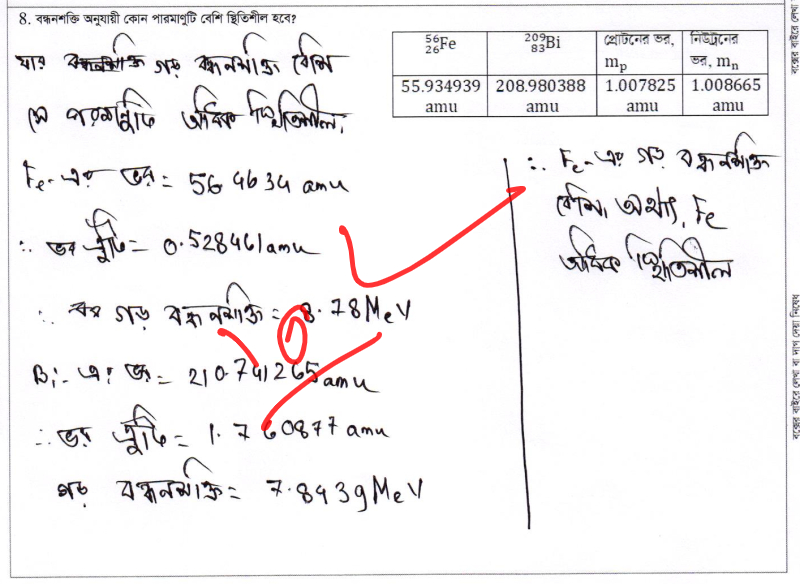 8. বন্ধনশক্তি অনুযায়ী কোন পারমাণুটি বেশি স্থিতিশীল হবে?
⁵⁶₂₆Fe ²⁰⁹₈₃Bi প্রোটনের ভর, mₚ নিউট্রনের ভর, mₙ
55.934939 amu 208.980388 amu 1.007825 amu 1.008665 amu
যার গড় বন্ধনশক্তি বেশি
সে পরমাণুটি অধিক স্থিতিশীল।
Fe-এর ভর = 56.4634 amu
∴ ভর ত্রুটি = 0.528461 amu
∴ গড় বন্ধনশক্তি = 8.78 MeV
Bi-এর ভর = 210.741265 amu
∴ ভর ত্রুটি = 1.760877 amu
গড় বন্ধনশক্তি = 7.8439 MeV
∴ Fe-এর গড় বন্ধনশক্তি
বেশি, অর্থাৎ, Fe
অধিক স্থিতিশীল